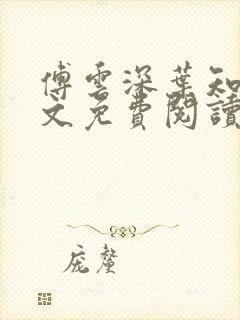 傅雲深葉知
文免費閱讀
庞厘